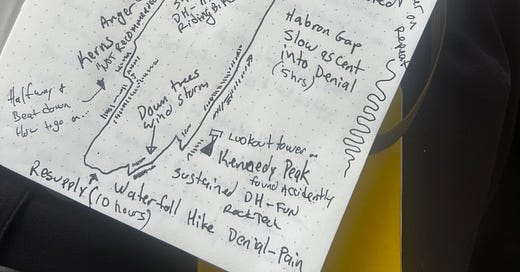 Anger
Kerns
DH-
Riding
Habron Gap
Slow ascent
into Denial
(5hrs)
Halfway &
Beat down
How to go on...
Down trees
wind storm
Lookout tower on
Kennedy Peak
found Accidently
Sustained DH-Fun
Rock Tech
Resupply (10 hours)
Waterfall Hike Denial-Pain